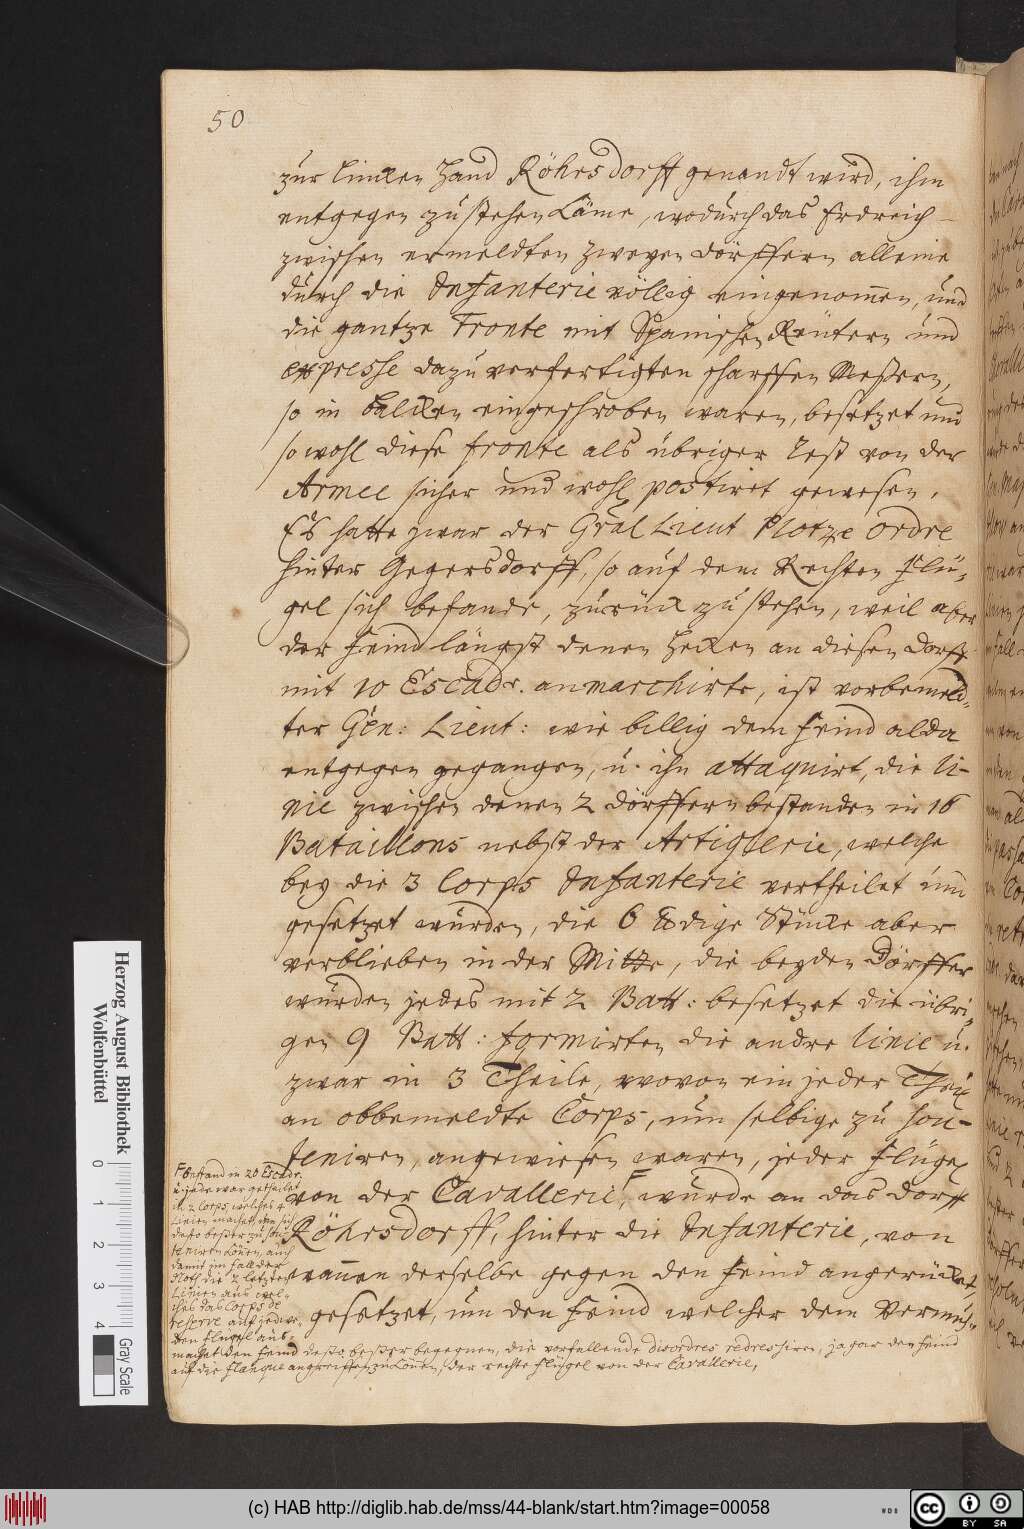 50
zur lincken Hand Röhrsdorff genandt wird, ihm
entgegen zu stehen käme, wodurch das Erdreich
zwischen ermeldten zweyen Dörffern alleine
durch die Infanterie völlig eingenomen, und
die gantze Fronte mit Spanischen Reütern und
expresse dazu verfertigten scharffen Meßern,
so in Balcken eingeschroben waren, besetzet und
so wohl diese fronte als übriger Rest von der
Armee sicher und wohl postiret gewesen.
Es hatte zwar der Gral Lieut Plotze Ordre
hinter Gegersdorff, so auf dem Rechten Flü-
gel sich befande, zurück zu stehen, weil aber
der Feind längst denen Hecken an diesen Dorff
mit 10 Escadr. anmarchirte, ist vorbemeld-
ter Gen: Lieut: wie billig dem Feind alda
entgegen gegangen, u. ihn attaquirt, die li-
nie zwischen denen 2 Dörffern bestanden in 16
Bataillons nebst der Artiglerie, welche
bey die 3 Corps Infanterie vertheilet und
gesetzet wurden, die 6 ℔dige Stücke aber
verblieben in der Mitte, die beyden Dörffer
wurden jedes mit 2 Batt: besetzet die übri-
gen 9 Batt: formirten die andre linie u.
zwar in 3 Theile, wovon ein jeder Theil
an obbemeldte Corps, um selbige zu sou-
teniren, angewiesen waren, jeder Flügel
von der Cavallerie, F wurde an das Dorff
Röhrsdorff, hinter die Infanterie, von
wannen derselbe gegen den Feind angerücket,
gesetzet, um den Feind welcher dem Vermuh-
F bestand in 20 Escadr.
u. jede war getheilet
in 2 Corps, welches 4
Linien machet, um sich
desto beßer zu sou-
teniren können, auch
damit im fall der
Noth die 2 letzten
Linien aus wel-
ches das Corps de
reserve auf jedwe-
den Flügel aus-
machet den Feind desto beßer begegnen, die vorfallende disordres redressiren, ja gar den Feind
auf die Flanque angreiffen zu können, der rechte Flügel von der Cavallerie,
Herzog August Bibliothek
Wolfenbüttel
0 1 2 3 4
Gray Scale
(c) HAB http://diglib.hab.de/mss/44-blank/start.htm?image=00058
WDB
cc BY SA